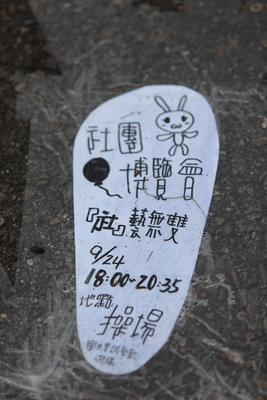 社團
博覽會
『社』藝無雙
9/24
18:00~20:35
地點
操場